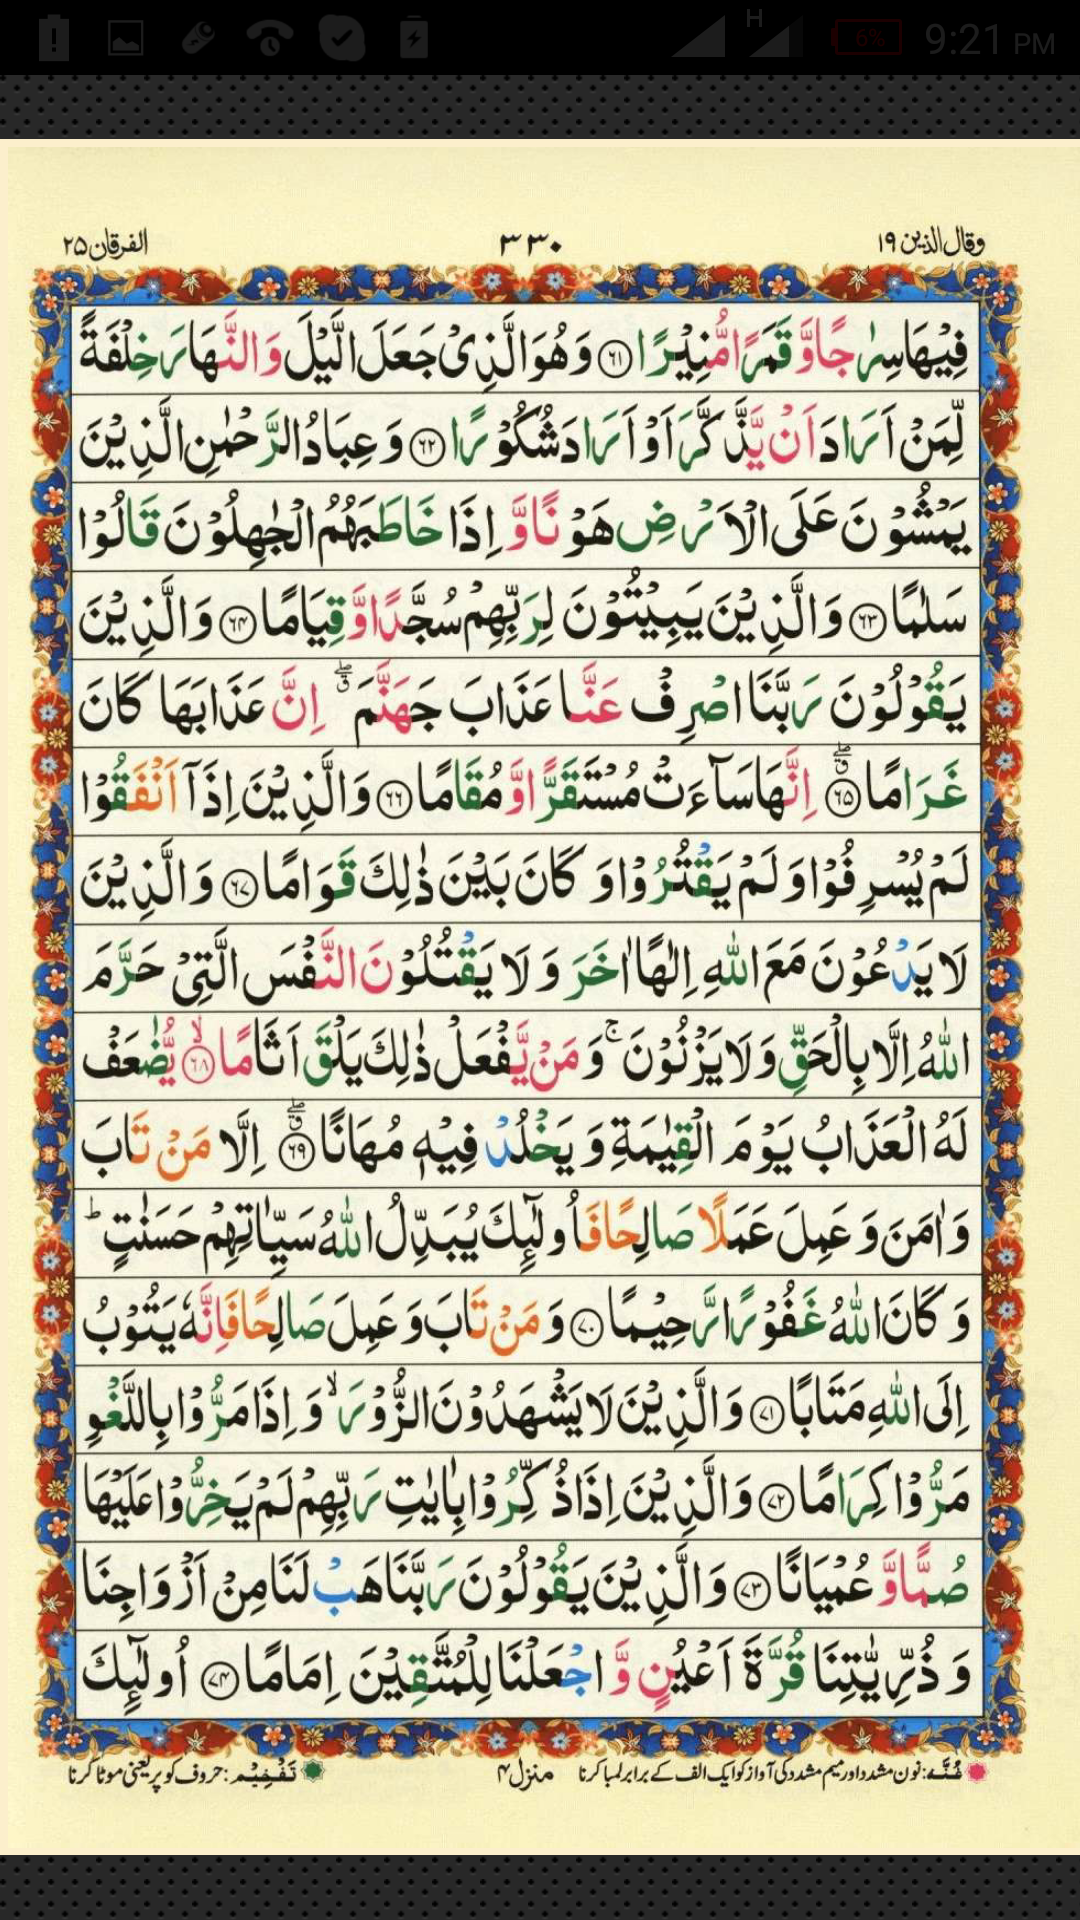 H 6% 9:21 PM
وقال الذين ١٩ ٣٣٠ الفرقان ٢٥
فِيْهَا سِرٰجًا وَّ قَمَرًا مُّنِيْرًا ﴿٦١﴾ وَ هُوَ الَّذِیْ جَعَلَ الَّيْلَ وَ النَّهَارَ خِلْفَةً
لِّمَنْ اَرَادَ اَنْ يَّذَّكَّرَ اَوْ اَرَادَ شُكُوْرًا ﴿٦٢﴾ وَ عِبَادُ الرَّحْمٰنِ الَّذِيْنَ
يَمْشُوْنَ عَلَى الْاَرْضِ هَوْنًا وَّ اِذَا خَاطَبَهُمُ الْجٰهِلُوْنَ قَالُوْا
سَلٰمًا ﴿٦٣﴾ وَ الَّذِيْنَ يَبِيْتُوْنَ لِرَبِّهِمْ سُجَّدًا وَّ قِيَامًا ﴿٦٤﴾ وَ الَّذِيْنَ
يَقُوْلُوْنَ رَبَّنَا اصْرِفْ عَنَّا عَذَابَ جَهَنَّمَ ۖق اِنَّ عَذَابَهَا كَانَ
غَرَامًا ﴿٦٥﴾ۖق اِنَّهَا سَآءَتْ مُسْتَقَرًّا وَّ مُقَامًا ﴿٦٦﴾ وَ الَّذِيْنَ اِذَاۤ اَنْفَقُوْا
لَمْ يُسْرِفُوْا وَ لَمْ يَقْتُرُوْا وَ كَانَ بَيْنَ ذٰلِكَ قَوَامًا ﴿٦٧﴾ وَ الَّذِيْنَ
لَا يَدْعُوْنَ مَعَ اللّٰهِ اِلٰهًا اٰخَرَ وَ لَا يَقْتُلُوْنَ النَّفْسَ الَّتِیْ حَرَّمَ
اللّٰهُ اِلَّا بِالْحَقِّ وَ لَا يَزْنُوْنَ ۚ وَ مَنْ يَّفْعَلْ ذٰلِكَ يَلْقَ اَثَامًا ﴿٦٨﴾ۙ يُّضٰعَفْ
لَهُ الْعَذَابُ يَوْمَ الْقِيٰمَةِ وَ يَخْلُدْ فِيْهٖ مُهَانًا ﴿٦٩﴾ۖق اِلَّا مَنْ تَابَ
وَ اٰمَنَ وَ عَمِلَ عَمَلًا صَالِحًا فَاُولٰٓئِكَ يُبَدِّلُ اللّٰهُ سَيِّاٰتِهِمْ حَسَنٰتٍ ؕ
وَ كَانَ اللّٰهُ غَفُوْرًا رَّحِيْمًا ﴿٧٠﴾ وَ مَنْ تَابَ وَ عَمِلَ صَالِحًا فَاِنَّهٗ يَتُوْبُ
اِلَى اللّٰهِ مَتَابًا ﴿٧١﴾ وَ الَّذِيْنَ لَا يَشْهَدُوْنَ الزُّوْرَ ۙ وَ اِذَا مَرُّوْا بِاللَّغْوِ
مَرُّوْا كِرَامًا ﴿٧٢﴾ وَ الَّذِيْنَ اِذَا ذُكِّرُوْا بِاٰيٰتِ رَبِّهِمْ لَمْ يَخِرُّوْا عَلَيْهَا
صُمًّا وَّ عُمْيَانًا ﴿٧٣﴾ وَ الَّذِيْنَ يَقُوْلُوْنَ رَبَّنَا هَبْ لَنَا مِنْ اَزْوَاجِنَا
وَ ذُرِّيّٰتِنَا قُرَّةَ اَعْيُنٍ وَّ اجْعَلْنَا لِلْمُتَّقِيْنَ اِمَامًا ﴿٧٤﴾ اُولٰٓئِكَ
غُنَّہ: نون مشدد اور میم مشدد کی آواز کو ایک الف کے برابر لمبا کرنا منزل ۴ تَفْخِيْم: حروف کو پُر یعنی موٹا کرنا